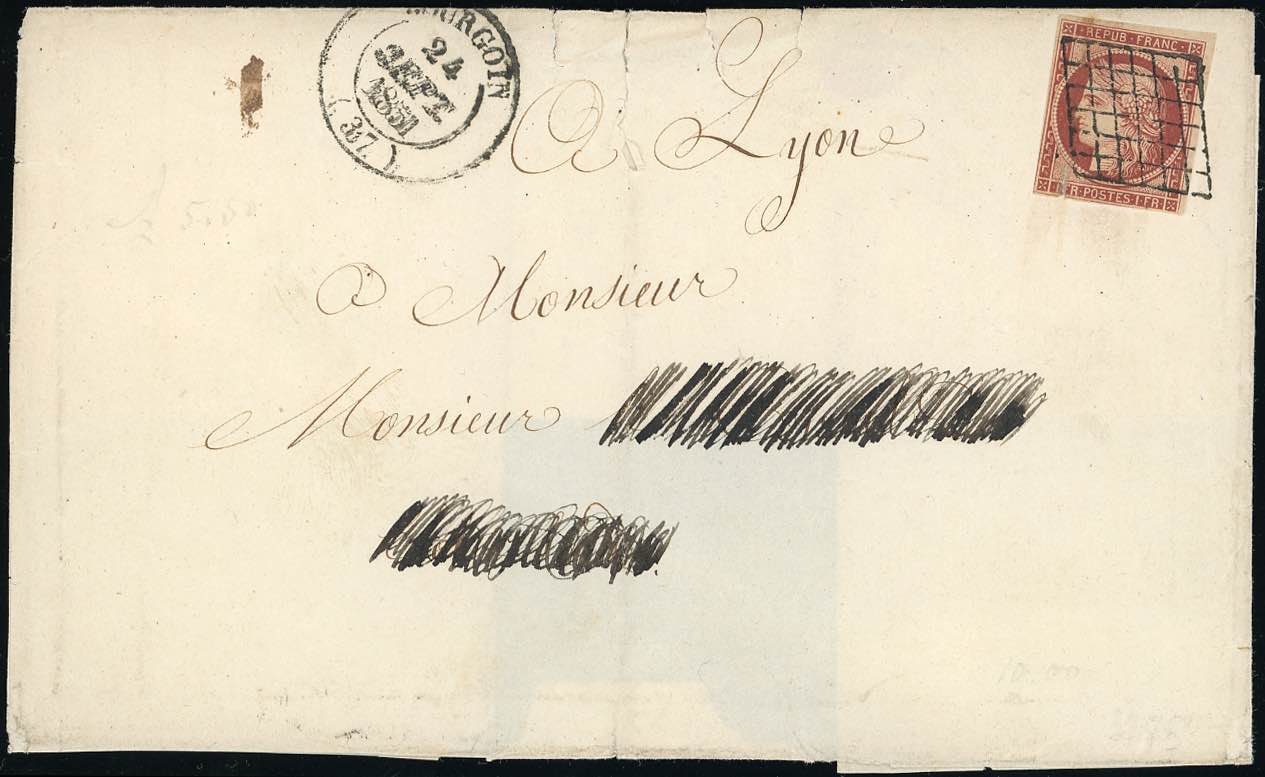 BOURGOIN
24
SEPT
1851
(37)
REPUB·FRANC·
1·FR·POSTES·1·FR
A Lyon
A Monsieur
Monsieur
5.50
10.00